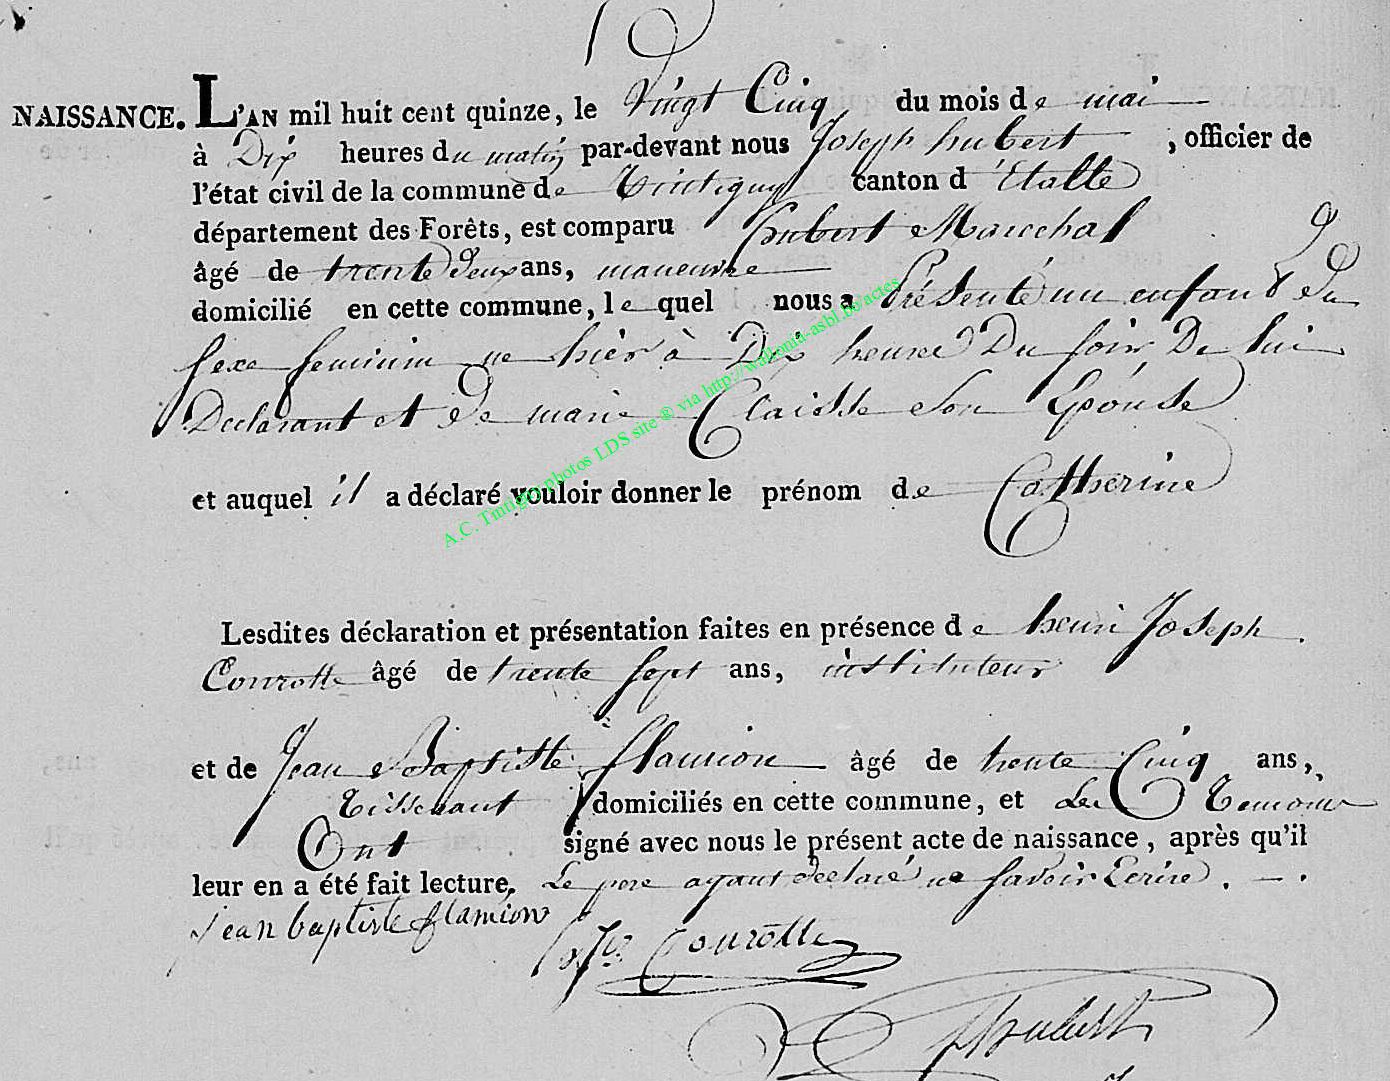 NAISSANCE. L'AN mil huit cent quinze, le Vingt Cinq du mois de mai
à Dix heures du matin par-devant nous Joseph hubert , officier de
l'état civil de la commune de Tintigny canton d'Etalle
département des Forêts, est comparu hubert Marechal
âgé de trente Deux ans, maneuvre
domicilié en cette commune, le quel nous a Présenté un enfant du
sexe feminin ne hier à Dix heures Du soir De lui
Declarant et De marie Claisse son Epouse
et auquel il a déclaré vouloir donner le prénom de Catherine
A.C. Tintigny photos LDS site ® via http://wallonia-asbl.be/actes
Lesdites déclaration et présentation faites en présence de henri Joseph
Courotte âgé de trente sept ans, instituteur
et de Jean Baptiste flamion âgé de trente Cinq ans,
Tisserant domiciliés en cette commune, et Les Temoins
Ont signé avec nous le présent acte de naissance, après qu'il
leur en a été fait lecture. Le pere ayant declaré ne savoir Ecrire.
jean baptiste flamion
hJo. Courotte
JHubert